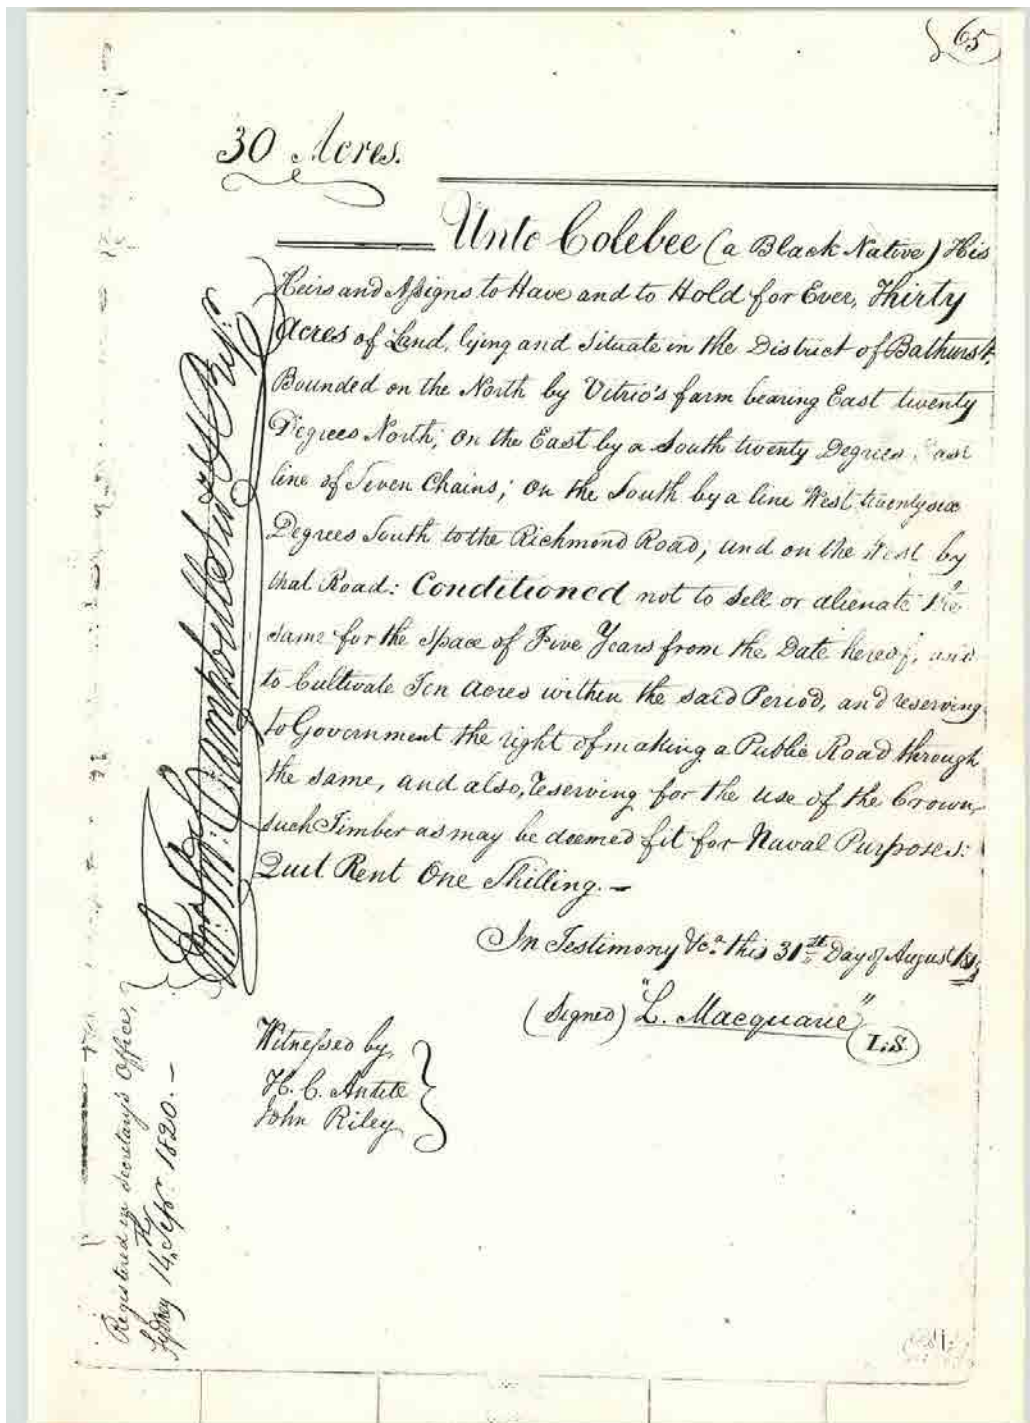 65
30 Acres.
Unto Colebee (a Black Native) His
Heirs and Assigns to Have and to Hold for Ever, Thirty
Acres of Land, lying and Situate in the District of Bathurst,
Bounded on the North by Vitrio's farm bearing East twenty
Degrees North; On the East by a South twenty Degrees East
line of Seven Chains; On the South by a line West twenty six
Degrees South to the Richmond Road; and on the West by
that Road: Conditioned not to Sell or alienate the
same for the Space of Five Years from the Date hereof, and
to Cultivate Ten Acres within the said Period, and reserving
to Government the right of making a Public Road through
the same, and also, reserving for the use of the Crown,
such Timber as may be deemed fit for Naval Purposes:
Quit Rent One Shilling. —
In Testimony &ca. this 31st Day of August
(Signed) "L. Macquarie"
L.S.
Witnessed by,
H. C. Antill
John Riley
Registered in Secretary's Office,
Sydney 14th Septr. 1820. —